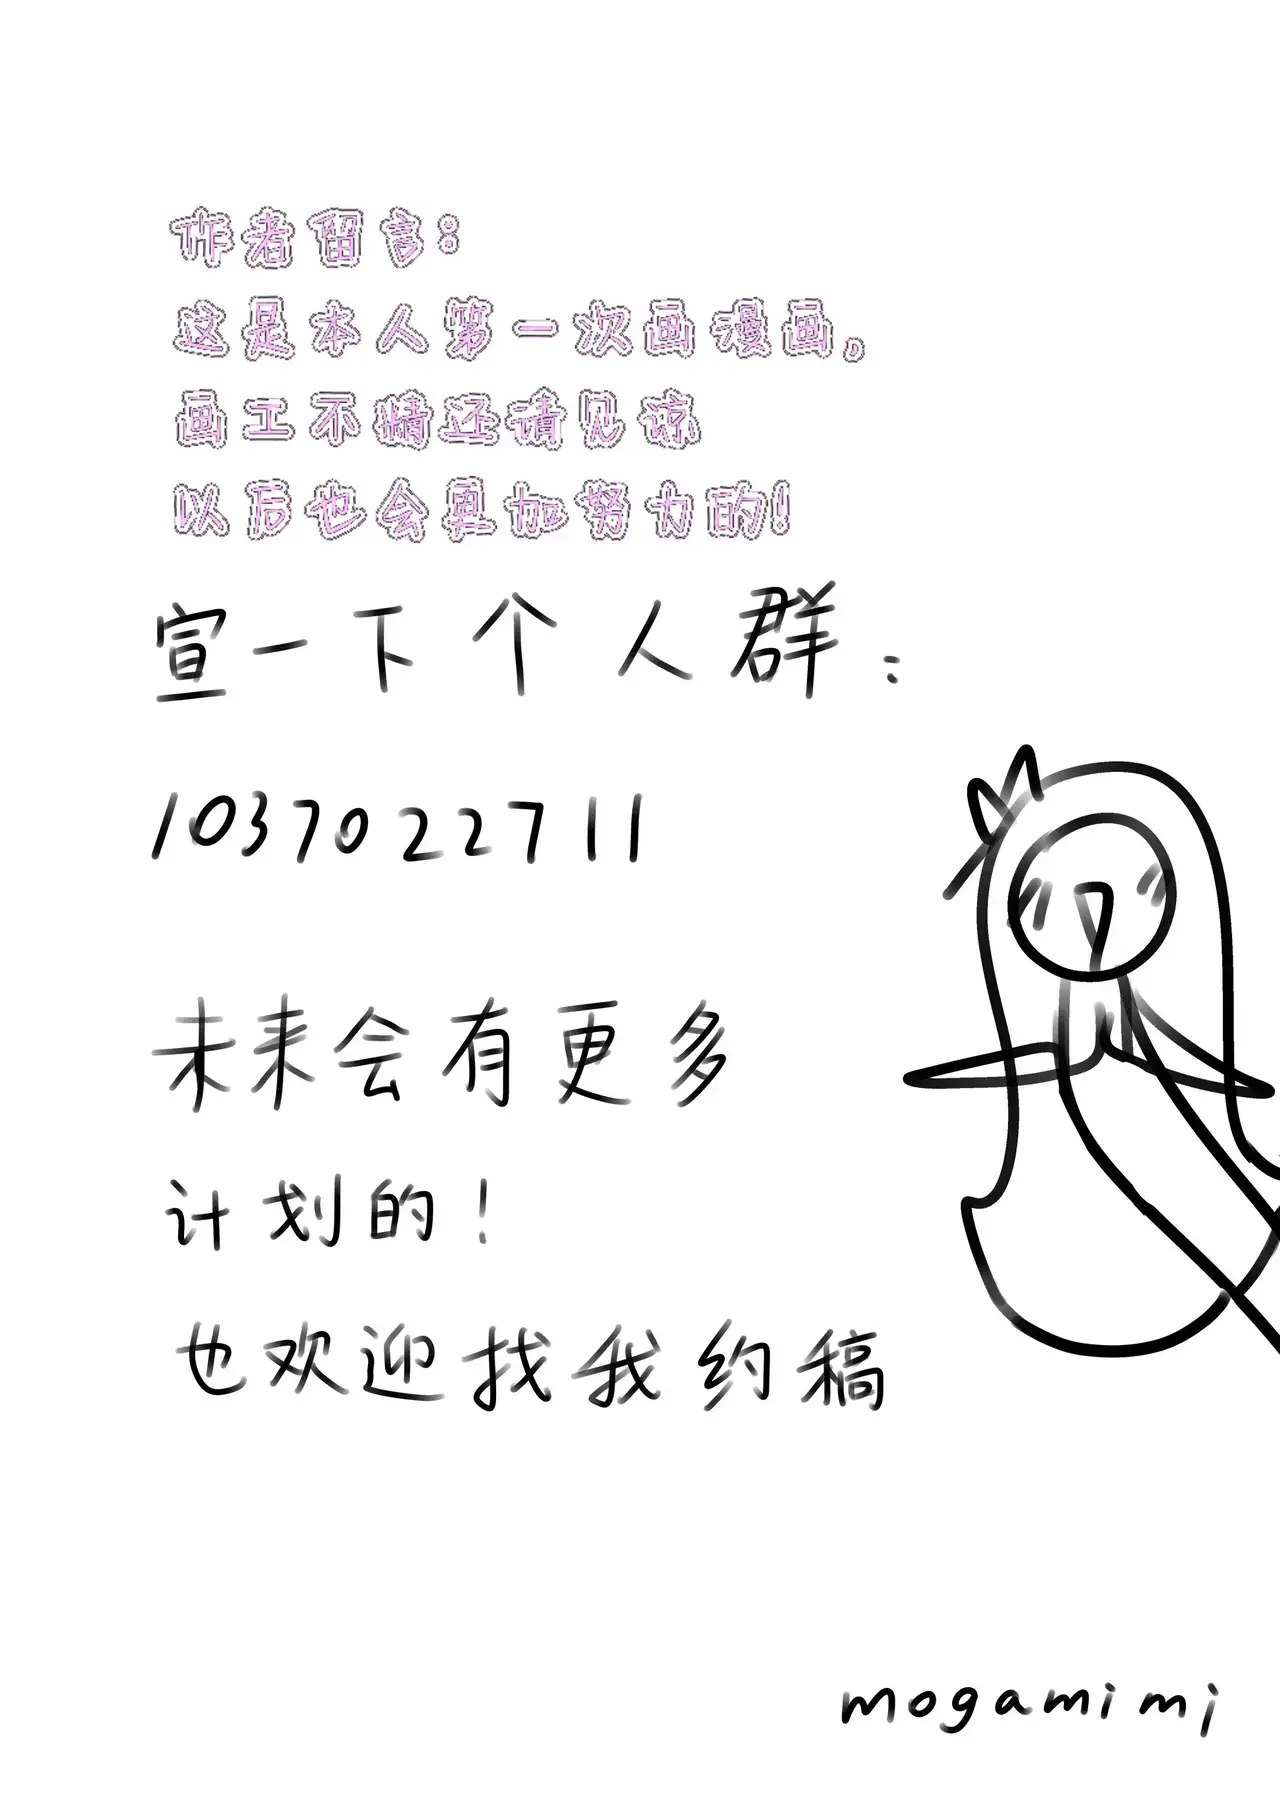 作者留言：
这是本人第一次画漫画。
画工不精还请见谅
以后也会更加努力的!
宣一下个人群：
1037022711
未来会有更多
计划的！
也欢迎找我约稿
mogamimi